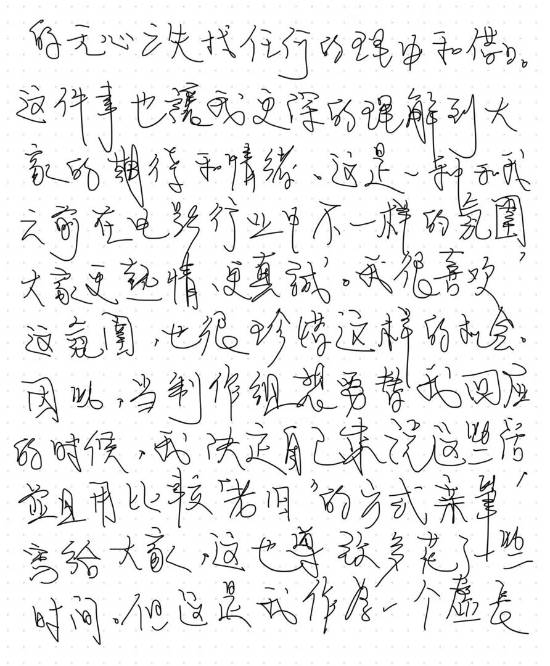 的无心之失找任何的理由和借口。
这件事也讓我更深的理解到大
家的期待和情绪。这是一种和我
之前在电影行业中不一样的氛圍,
大家更熱情、更真誠。我很喜欢
这氛圍,也很珍惜这样的机会。
因此,当制作组想要替我回应
的时候,我决定自己来说这些话,
並且用比较“老旧”的方式亲筆
寫给大家,这也導致多花了一些
时间。但这是我作為一个虛長